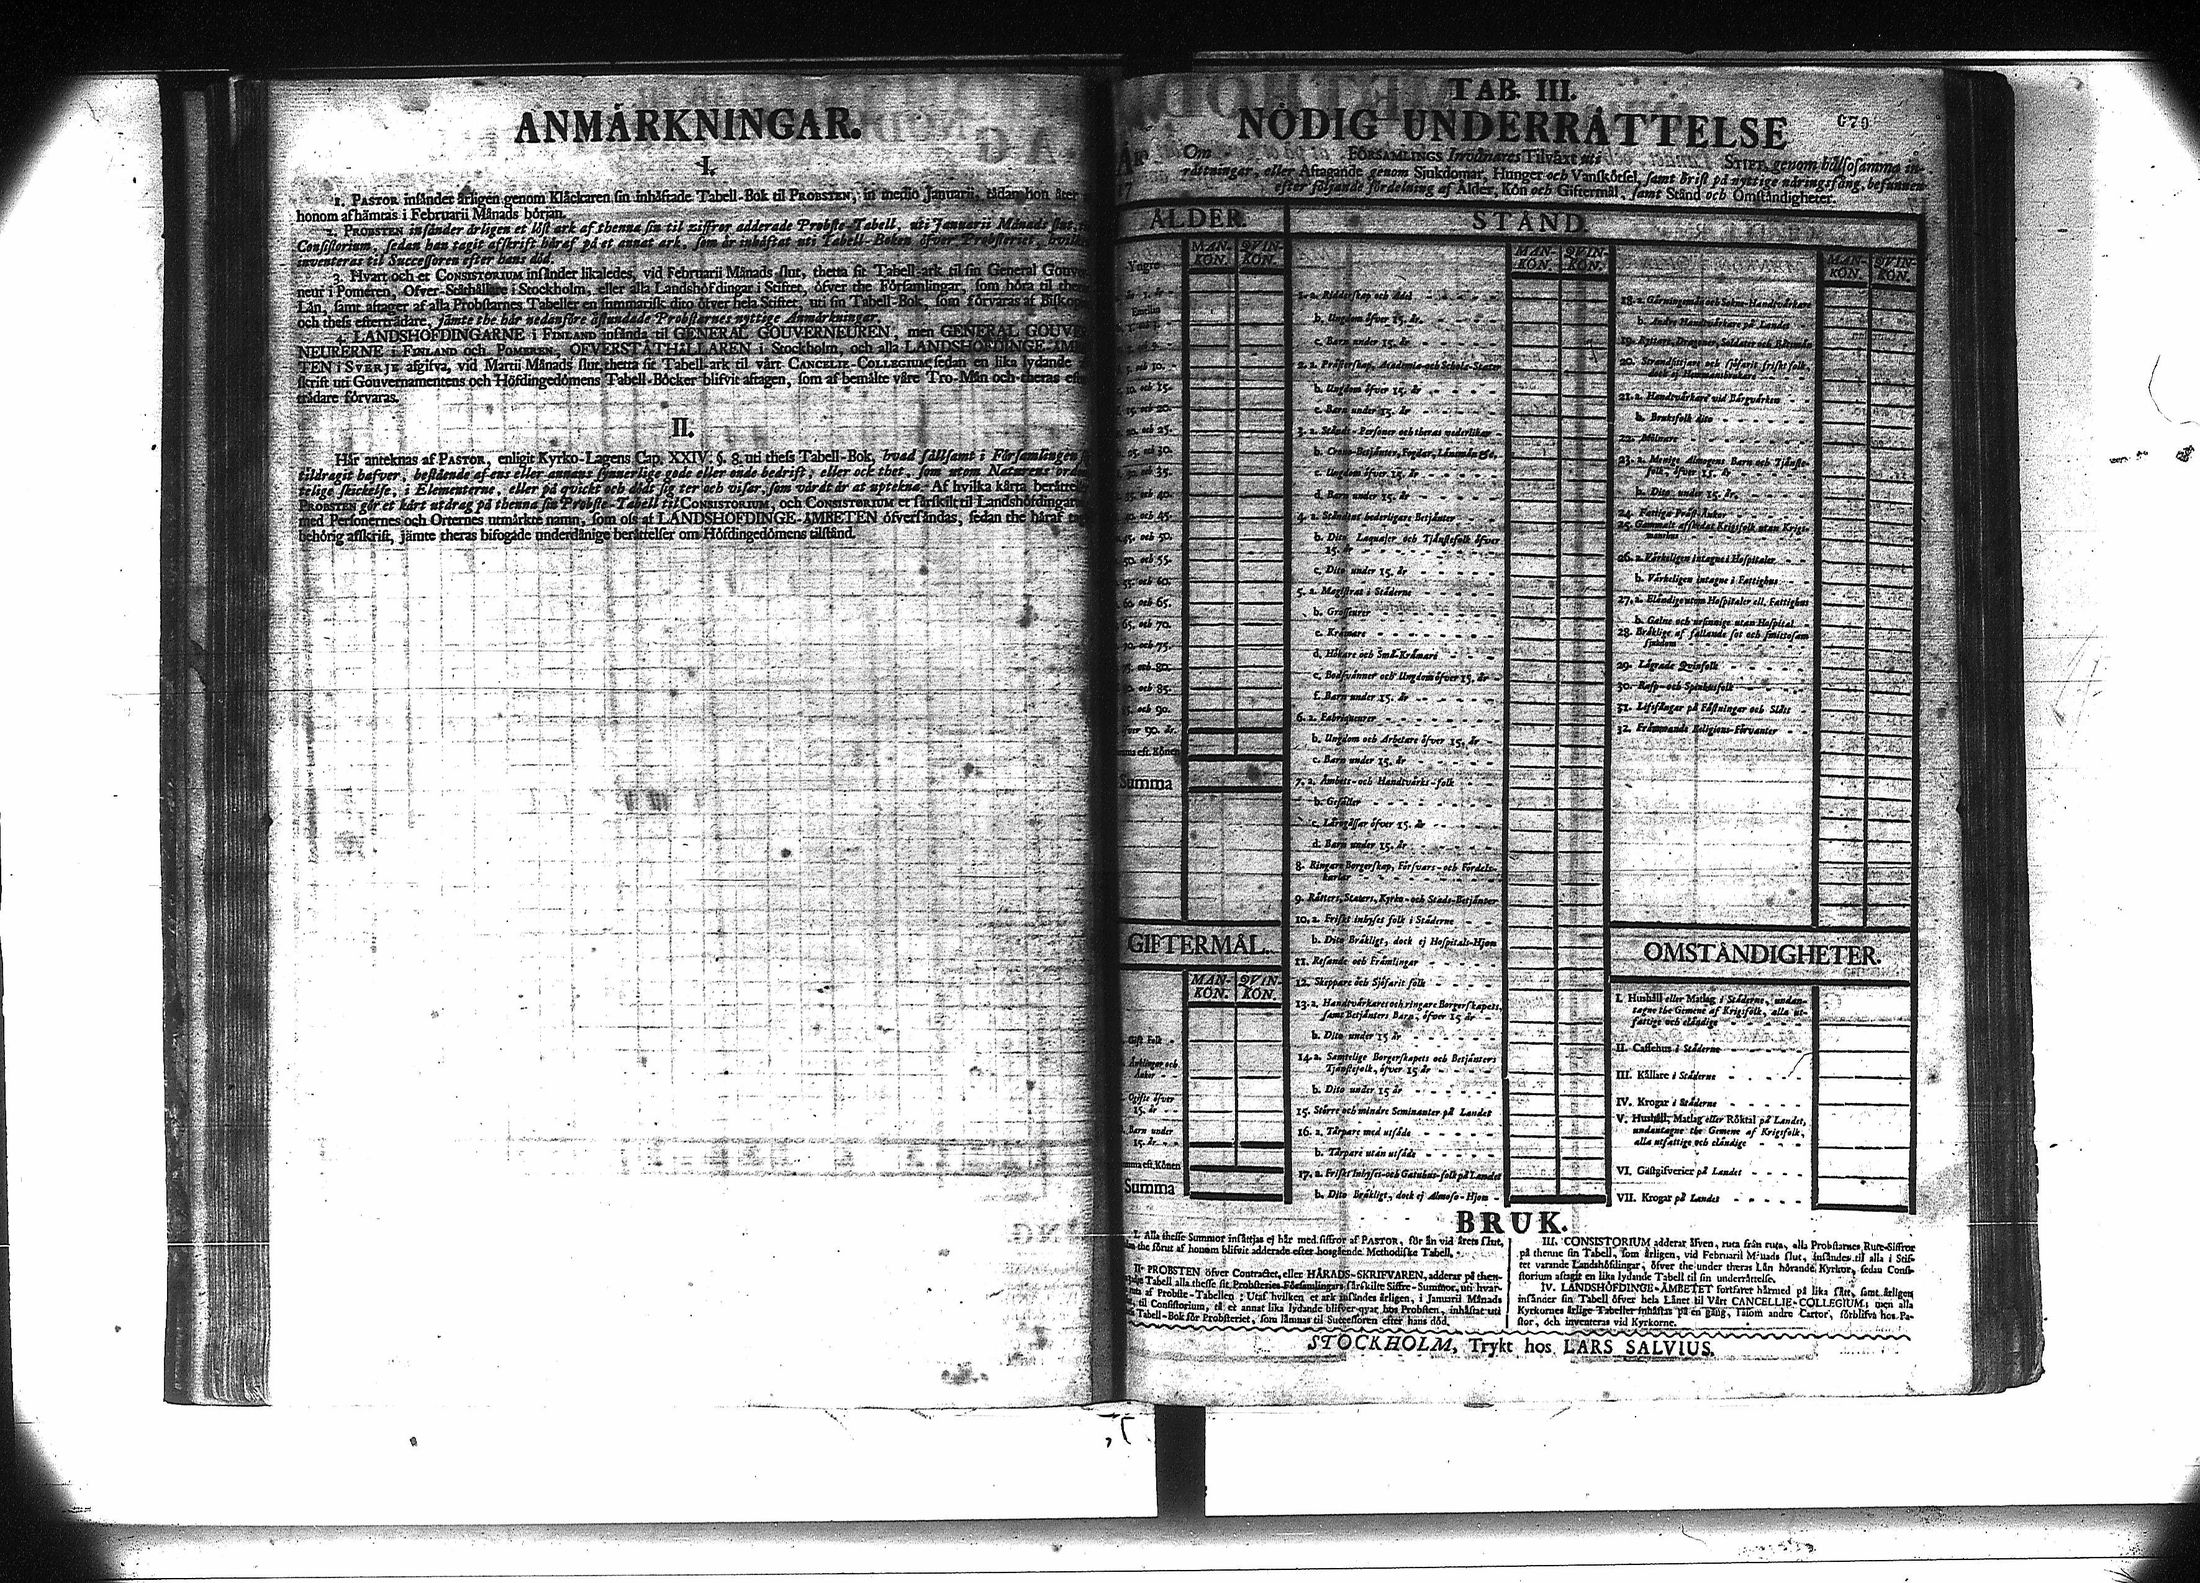 ANMÄRKNINGAR.
I.
1. PASTOR insänder årligen genom Klåckaren sin inhäftade Tabell-Bok til PROBSTEN, in medio Januarii, tådan hon åter
honom afhämtas i Februarii Månads början.
2. PROBSTEN insänder årligen et löst ark af thenna sin til ziffror adderade Probste-Tabell, uti Januarii Månads slut,
Consistorium, sedan han tagit afskrift häraf på et annat ark, som är inhäftat uti Tabell-Boken öfver Probsteriet,
inventeras til Successoren efter hans död.
3. Hvart och et CONSISTORIUM insänder likaledes, vid Februarii Månads slut, thetta sit Tabell-ark til sin General
neur i Pomeren, Öfver-Ståthållare i Stockholm, eller alla Landshöfdingar i Stiftet, öfver the Församlingar, som höra til
Län, samt aftager af alla Probstarnes Tabeller en summarisk dito öfver hela Stiftet, uti sin Tabell-Bok, som förvaras af
och thess efterträdare, jämte the här nedanföre åstundade Probstarnes nyttige Anmärkningar.
4. LANDSHÖFDINGARNE i FINLAND insända til GENERAL GOUVERNEUREN, men GENERAL
NEURERNE i FINLAND och POMEREN, ÖFVERSTÅTHÅLLAREN i Stockholm, och alla LANDSHÖFDINGE
TEN i SVERJE afgifva, vid Martii Månads slut, thetta sit Tabell-ark til vårt CANCELIE-COLLEGIUM, sedan en lika lydande
skrift uti Gouvernamentens och Höfdingedömens Tabell-Böcker blifvit aftagen, som af bemälte våre Tro-Män och theras
trädare förvaras.
II.
Här anteknas af PASTOR, enligit Kyrko-Lagens Cap. XXIV. §. 8. uti thess Tabell-Bok, hvad sällsamt i Församlingen
tildragit hafver, bestående af ens eller annans synnerlige gode eller onde bedrift, eller ock thet, som utom Naturens
telige skickelse, i Elementerne, eller på qvickt och dödt sig ter och visar, som värdt är at uptekna. Af hvilka korta
PROBSTEN gör et kort utdrag på thenna sin Probste-Tabell til CONSISTORIUM, och CONSISTORIUM et särskilt til Landshöfdingarne
med Personernes och Orternes utmärkte namn, som oss af LANDSHÖFDINGE-ÄMBETEN öfversändas, sedan the häraf
behörig afskrift, jämte theras bifogade underdånige berättelser om Höfdingedömens tilstånd.
TAB. III.
NÖDIG UNDERRÄTTELSE
679
Om FÖRSAMLINGS Invånares Tilväxt uti STIFT, genom hälsosamma in-
rättningar, eller Aftagande genom Sjukdomar, Hunger och Vanskötsel, samt Brist på nyttige näringsfång, befunnen
efter följande fördelning af Ålder, Kön och Giftermål, samt Stånd och Omständigheter.
ÅLDER.
MAN-KÖN. QVIN-KÖN.
Yngre
Emellan
10 och 15.
15 och 20.
20 och 25.
25 och 30.
30 och 35.
35 och 40.
40 och 45.
45 och 50.
50 och 55.
55 och 60.
60 och 65.
65 och 70.
70 och 75.
75 och 80.
80 och 85.
85 och 90.
öfver 90. år.
Summa eft. Könen
Summa
GIFTERMÅL.
MAN-KÖN. QVIN-KÖN.
Gift Folk
Änklingar och
Änkor
Ogifte öfver
15. år
Barn under
15. år
Summa eft. Könen
Summa
STÅND.
MAN-KÖN. QVIN-KÖN.
1. a. Ridderskap och Adel
b. Ungdom öfver 15. år
c. Barn under 15. år
2. a. Prästerskap, Academie och Schole-Stater
b. Ungdom öfver 15. år
c. Barn under 15. år
3. a. Stånds-Personer och theras vederlikar
b. Crono-Betjänter, Fogdar, Länsmän etc.
c. Ungdom öfver 15. år
d. Barn under 15. år
4. a. Ståndens hederligare Betjänter
b. Dito Laquajer och Tjänstefolk öfver
15. år
c. Dito under 15. år
5. a. Magistrat i Städerne
b. Grosseurer
c. Krämare
d. Hökare och Små-Krämari
e. Bodsvänner och Ungdom öfver 15. år
f. Barn under 15. år
6. a. Fabriqueurer
b. Ungdom och Arbetare öfver 15. år
c. Barn under 15. år
7. a. Ämbets- och Handtvärks-folk
b. Gesäller
c. Lärogåssar öfver 15. år
d. Barn under 15. år
8. Ringare Borgerskap, Försvars- och Fördels-
karlar
9. Rätters, Staters, Kyrko- och Stads-Betjänter
10. a. Friskt inhyses folk i Städerne
b. Dito Bräkligt, dock ej Hospitals-Hjon
11. Resande och Främlingar
12. Skeppare och Sjöfarit folk
13. a. Handtvärkares och ringare Borgerskapets,
samt Betjänters Barn, öfver 15 år
b. Dito under 15 år
14. a. Samtelige Borgerskapets och Betjänters
Tjänstefolk, öfver 15 år
b. Dito under 15 år
15. Större och mindre Seminanter på Landet
16. a. Torpare med utsäde
b. Torpare utan utsäde
17. a. Friskt Inhyses- och Gatuhus-folk på Landet
b. Dito Bräkligt, dock ej Almoso-Hjon
MAN-KÖN. QVIN-KÖN.
18. a. Gärningsmän och Sokne-Handtvärkare
b. Andre Handtvärkare på Landet
19. Ryttare, Dragoner, Soldater och Båtsmän
20. Strandsittare och sjöfarit friskt folk,
dock ej Hemmansbrukare
21. a. Handtvärkare vid Bärgvärken
b. Bruksfolk dito
22. Mölnare
23. a. Menige Almogens Barn och Tjänste-
folk, öfver 15. år
b. Dito under 15. år
24. Fattiga Präst-Änkor
25. Gammalt afskedat Krigsfolk utan Krigs-
manshus
26. a. Värkeligen intagne i Hospitaler
b. Värkeligen intagne i Fattighus
27. a. Eländige utom Hospitaler ell. Fattighus
b. Galne och ursinnige utan Hospital
28. Bräklige af fallande sot och smittosam
sjukdom
29. Lägrade Qvinfolk
30. Rasp- och Spinhusfolk
31. Lifsfångar på Fästningar och Slått
32. Främmande Religions-Förvanter
OMSTÄNDIGHETER.
I. Hushåll eller Matlag i Städerne, undan-
tagne the Gemene af Krigsfolk, alla ut-
fattige och eländige
II. Caffehus i Städerne
III. Källare i Städerne
IV. Krogar i Städerne
V. Hushåll, Matlag eller Röktal på Landet,
undantagne the Gemene af Krigsfolk,
alla utfattige och eländige
VI. Gästgifverier på Landet
VII. Krogar på Landet
BRUK.
I. Alla thesse Summor insättjas ej här med siffror af PASTOR, för än vid årets slut,
the förut af honom blifvit adderade efter hosgående Methodiske Tabell.
II. PROBSTEN öfver Contractet, eller HÄRADS-SKRIFVAREN, adderar på then-
Tabell alla thesse sit Probsteries Församlingars särskilte Siffre-Summor, uti hvar-
af Probste-Tabellen: Utaf hvilken et ark insändes årligen, i Januarii Månads
til Consistorium, så et annat lika lydande blifver qvar hos Probsten, inhäftat uti
Tabell-Bok för Probsteriet, som lämnas til Successoren efter hans död.
III. CONSISTORIUM adderar äfven, ruta från ruta, alla Probstarnes Rute-Siffror
på thenne sin Tabell, som årligen, vid Februarii Månads slut, insändes til alla i Stif-
tet varande Landshöfdingar, öfver the under theras Län hörande Kyrkor, sedan Consi-
storium aftagit en lika lydande Tabell til sin underrättelse.
IV. LANDSHÖFDINGE-ÄMBETET fortfaret härmed på lika sätt, samt årligen
insänder sin Tabell öfver hela Länet til Vårt CANCELLIE-COLLEGIUM; men alla
Kyrkornes årlige Tabeller inhäftas på en gång, såsom andre Cartor, förblifva hos Pa-
stor, och inventeras vid Kyrkorne.
STOCKHOLM, Trykt hos LARS SALVIUS.